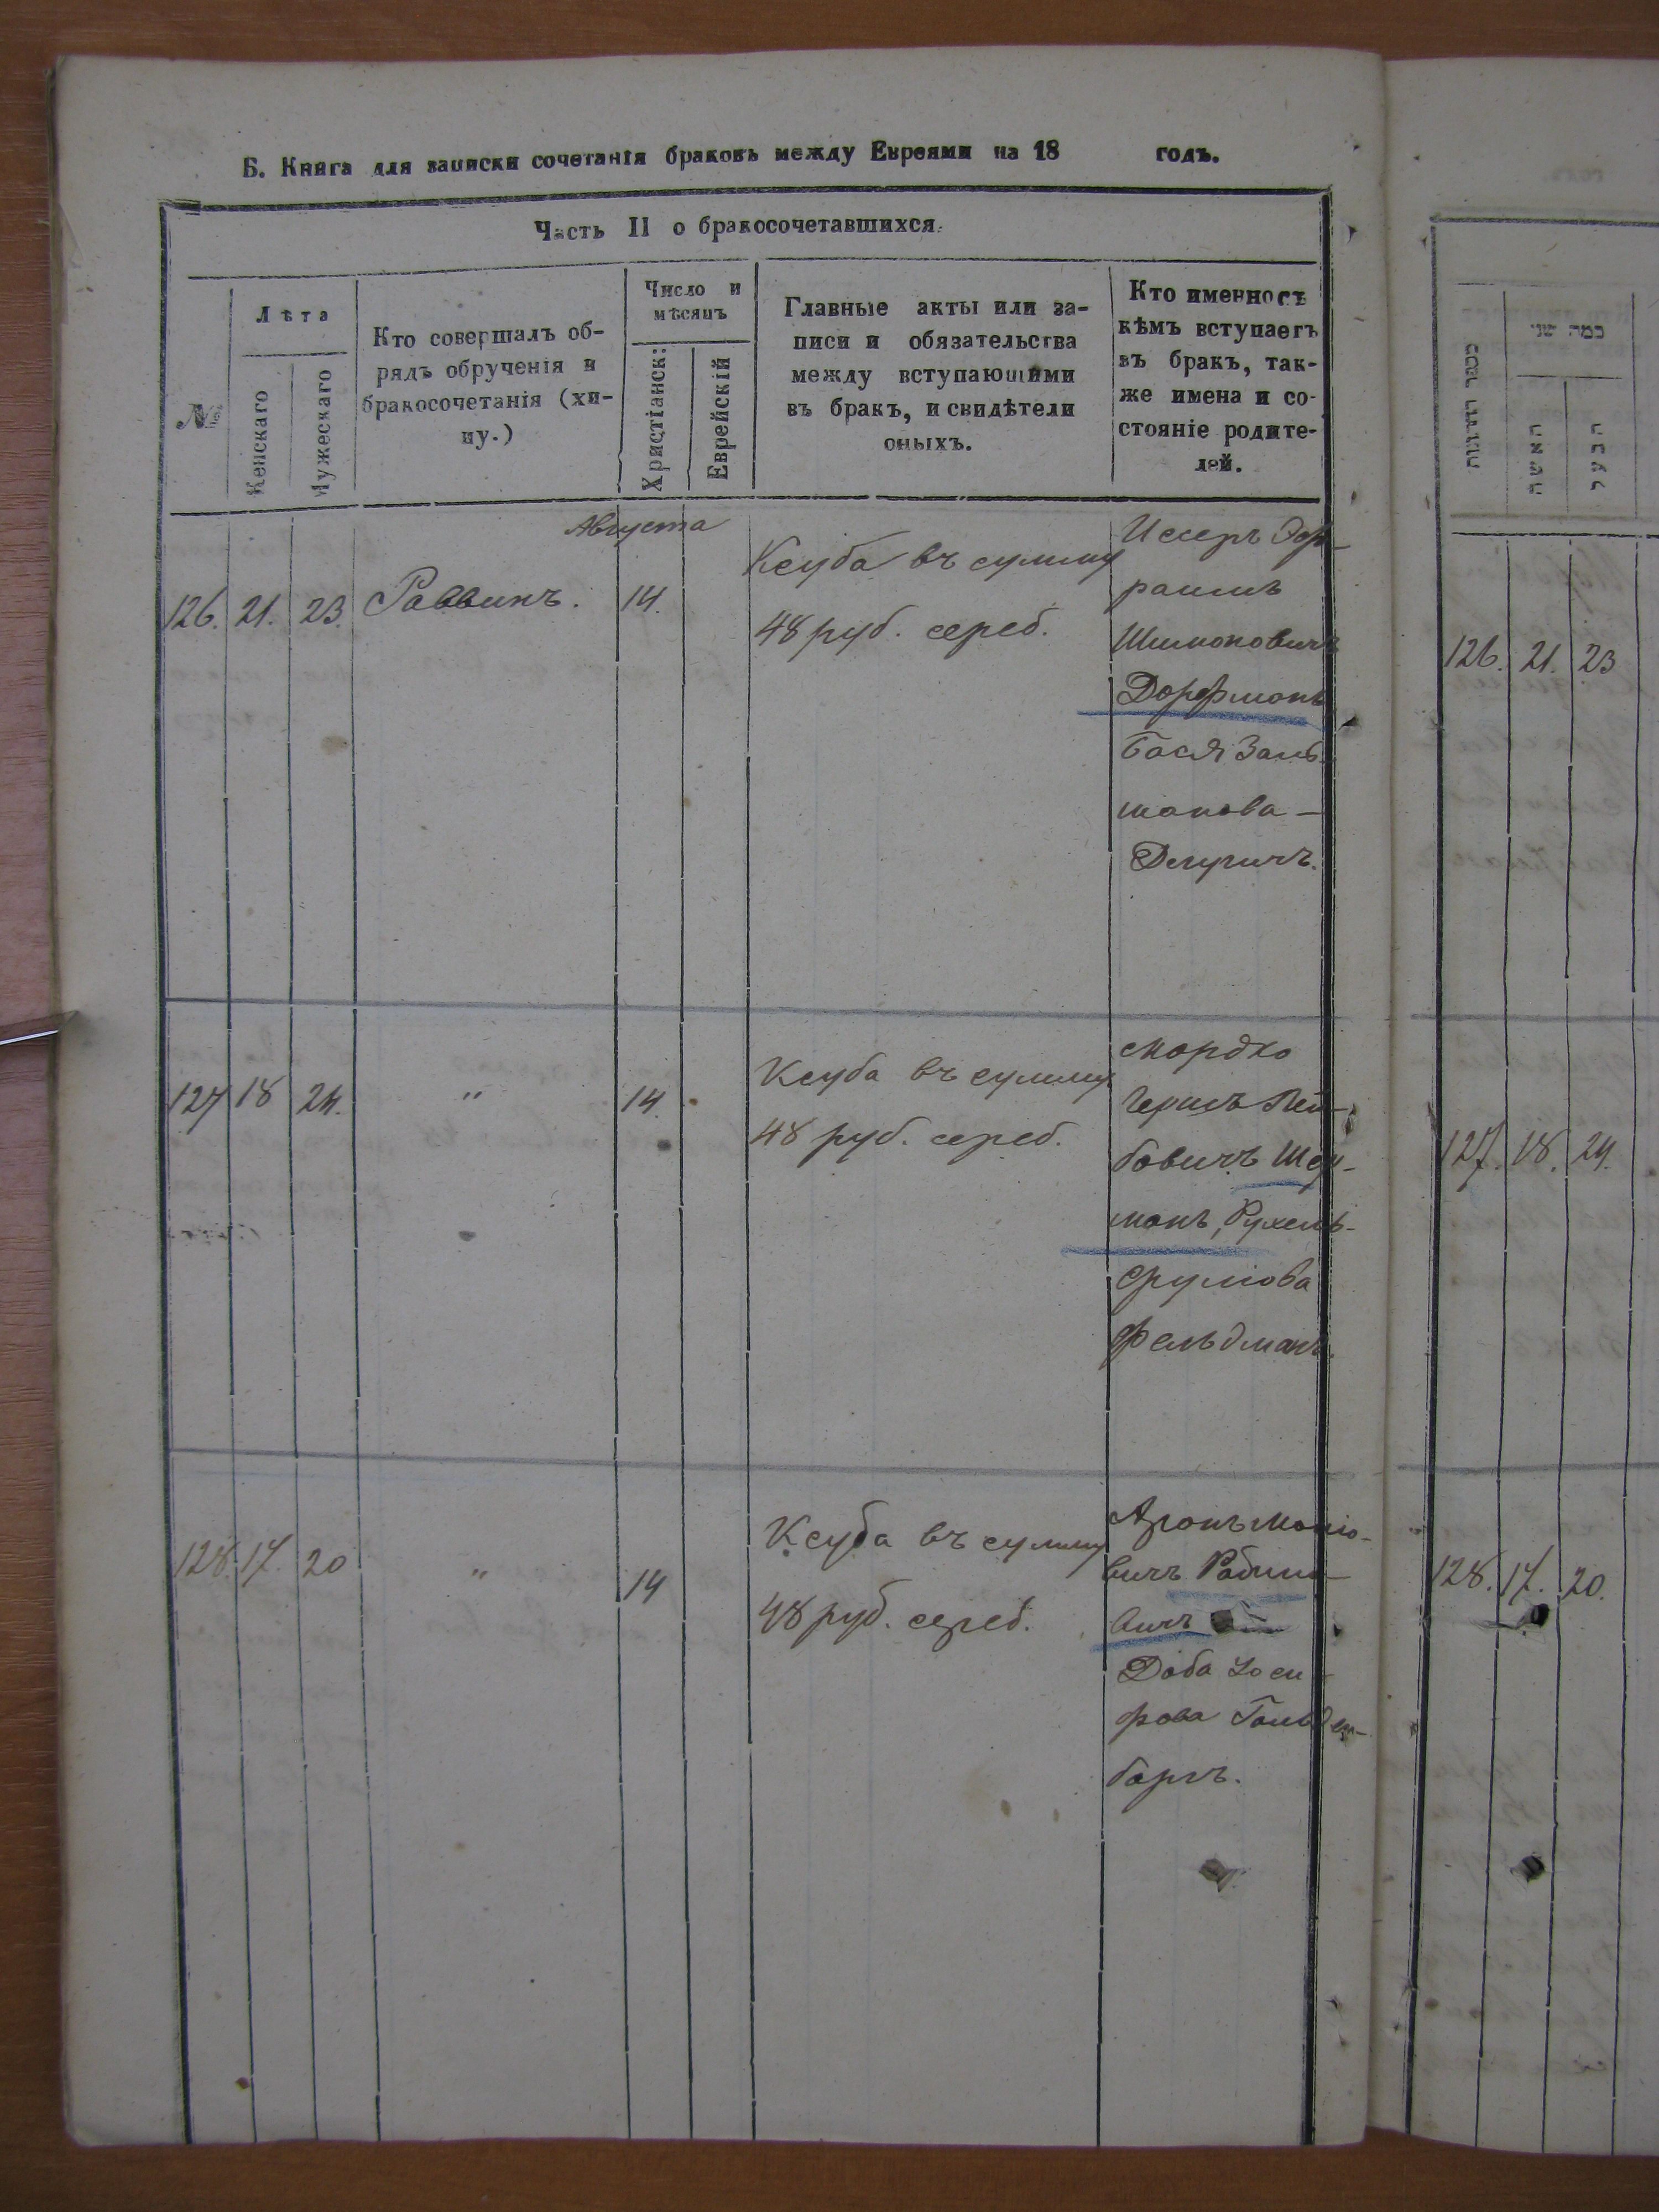 Б. Книга для записки сочетанія браковъ между Евреями на 18 годъ.
Часть II о бракосочетавшихся.
№
Лѣта
Женскаго
Мужескаго
Кто совершалъ об-
рядъ обрученія и
бракосочетанія (хи-
пу.)
Число и
мѣсяцъ
Христіанск:
Еврейскій
Главные акты или за-
писи и обязательства
между вступающими
въ бракъ, и свидѣтели
оныхъ.
Кто именно съ
кѣмъ вступаетъ
въ бракъ, так-
же имена и со-
стояніе родите-
лей.
Августа
126. 21. 23. Раввинъ. 14.
Ксуба въ сумму
48 руб. сереб.
Иссеръ Эф-
раимъ
Шимоновичъ
Дорфманъ
Бася Заль
манова —
127 18 24. " 14.
Ксуба въ сумму
48 руб. сереб.
Мордко
Гершъ Лей-
бовичъ
манъ, Рухель-
Срулова
Фельдманъ.
128. 17. 20 " 14
Ксуба въ сумму
48 руб. сереб.
Аронъ
вичъ Рабино-
вичъ
Доба Іоси
фова Гольден-
бергъ.
כמה שני
האשה
הבעל
126. 21. 23
127. 18. 24.
128. 17. 20.